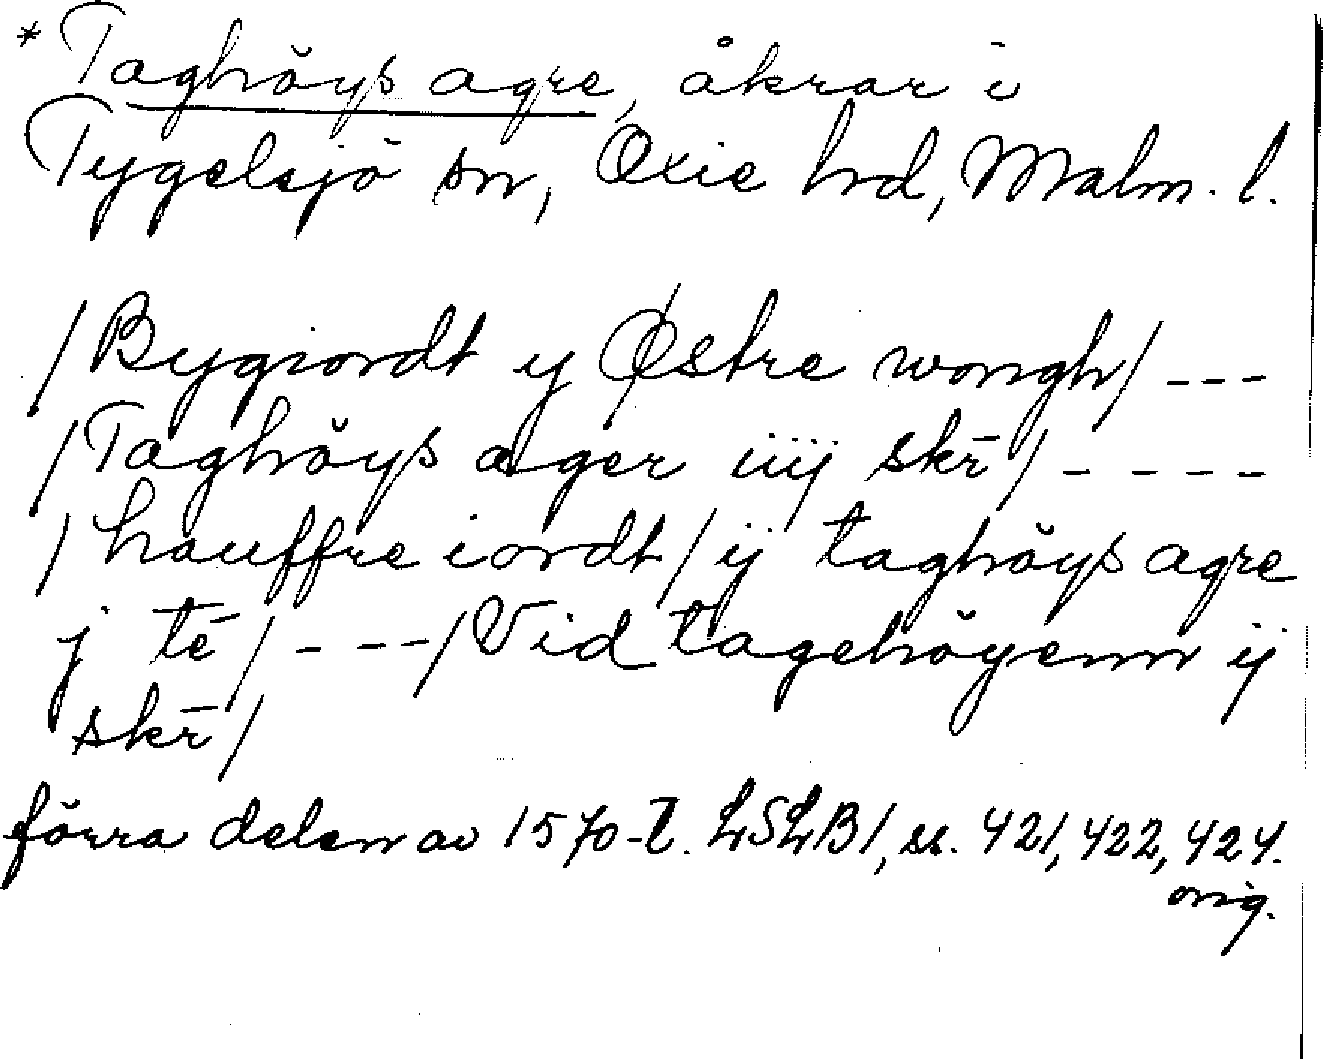 * Taghöys agre, åkrar i
Tygelsjö sn, Oxie hd, Malm. l.
/Bygiordt y Østre wongh/ ---
/Taghöys ager iiij skr̄/ ----
/hauffre iordt/ ij taghöys agre
j te̅/ ---/Vid tagehöyenn ij
skr̄/
förra delen av 1570-t. LSLB1, ss. 421, 422, 424.
orig.